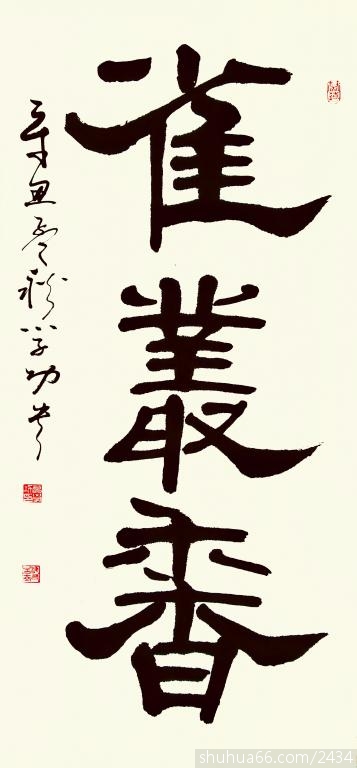 雀叢香
辛丑 秋 學功书
shuhua66.com/2434